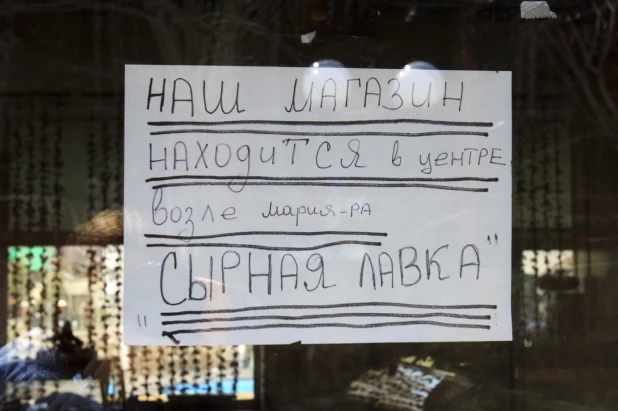 НАШ МАГАЗИН
НАХОДИТСЯ в ЦЕНТРЕ
возле МАРИЯ-РА
"СЫРНАЯ ЛАВКА"